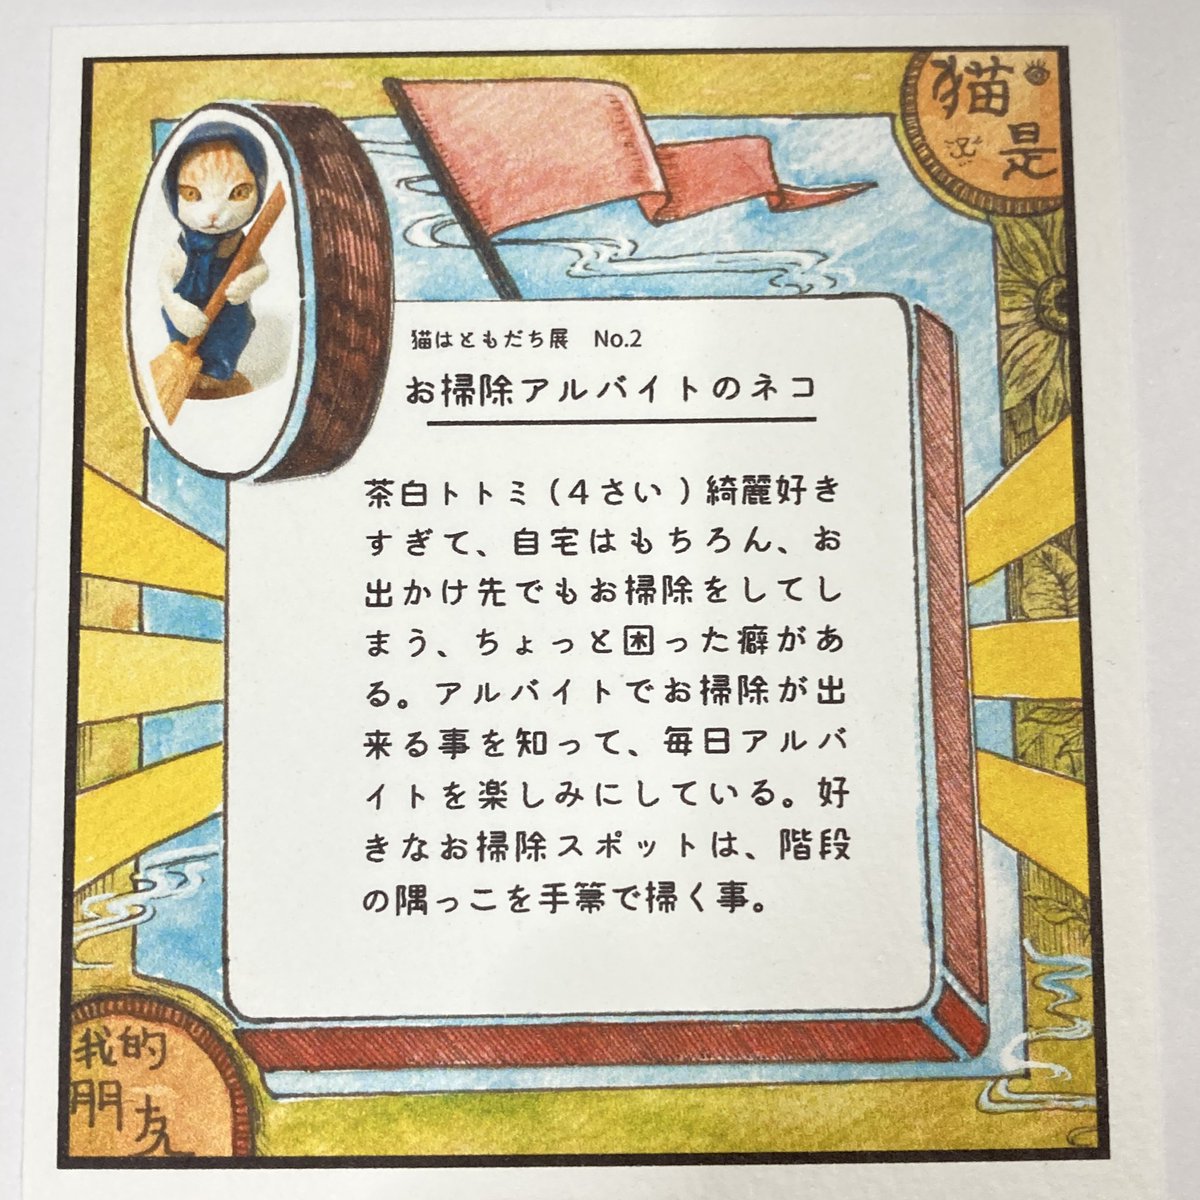 猫是
猫はともだち展　No.2
お掃除アルバイトのネコ
茶白トトミ(4さい)綺麗好き
すぎて、自宅はもちろん、お
出かけ先でもお掃除をしてし
まう、ちょっと困った癖があ
る。アルバイトでお掃除が出
来る事を知って、毎日アルバ
イトを楽しみにしている。好
きなお掃除スポットは、階段
の隅っこを手箒で掃く事。
我的
朋友